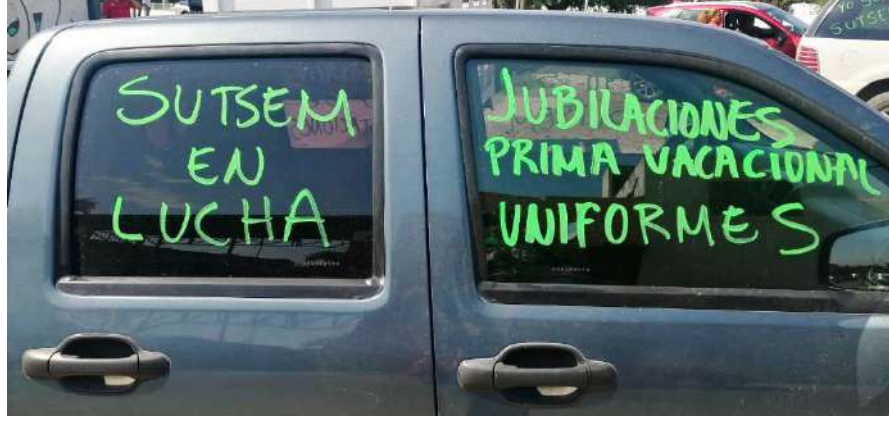 SUTSEM
EN
LUCHA
JUBILACIONES
PRIMA VACACIONAL
UNIFORMES
YO SOY
SUTSE